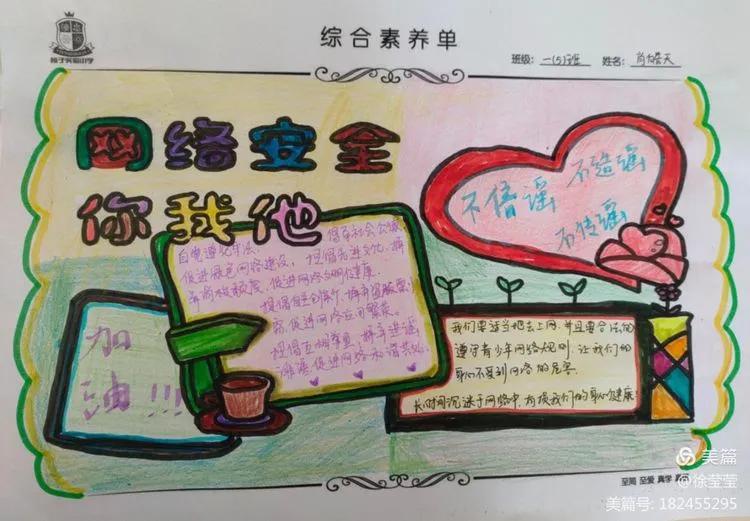 综合素养单
班级：一(5)班 姓名：
网络安全
你我他
不信谣 不造谣
不传谣
自觉遵纪守法，倡导社会公德，
促进绿色网络建设，提倡先进文化，摒
促进网络文明健康
提倡自主创新，摒弃盗版
促进网络应用繁荣。
提倡互相尊重，摒弃造谣
促进网络和谐共处。
加
油!!!
我们要适当地去上网，并且要合法的
遵守青少年网络规则，让我们的
身心不受到网络的危害。
长时间沉迷于网络中，有损我们的身心健康！
至简 至爱 真学
美篇
@徐莹莹
美篇号：182455295